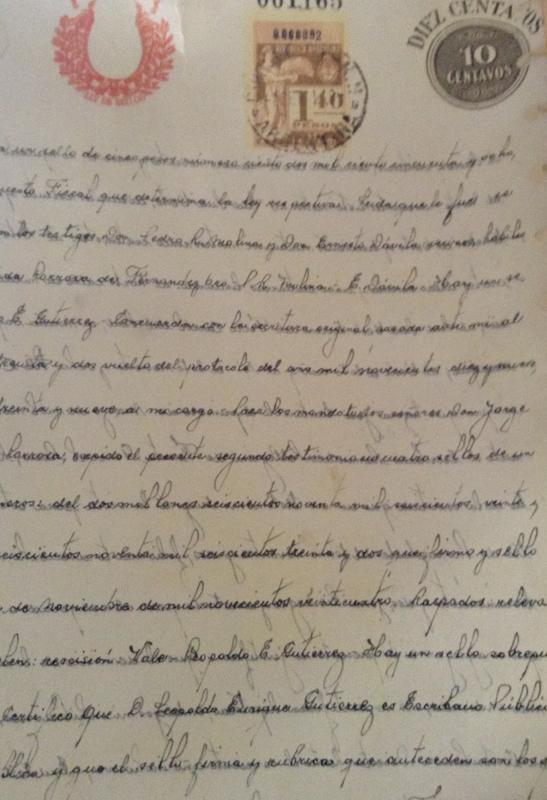 001,165
DIEZ CENTAVOS
0060892
10
CENTAVOS
1 40
PESOS
ARGENTINA
un sello de cinco pesos número ciento dos mil ciento cincuenta y ocho,
Fiscal que determina la ley respectiva. Leida que le fué se
los testigos Don Pedro R. Molina y Don Ernesto Dávila vecinos hábiles
Barroza de Fernandez P. R. Molina. E. Dávila. Hay un se
E. Gutierrez. Concuerda con la escritura original pasada ante mi al
y dos vuelto del protocolo del año mil novecientos diez y nueve,
treinta y nueve, a mi cargo. Para los mandatarios señores Don Jorge
Barroza, expido el presente segundo testimonio en cuatro sellos de un
del dos millones seiscientos noventa mil seiscientos veinte y
seiscientos noventa mil seiscientos treinta y dos que firmo y sello
de noviembre de mil novecientos veinticuatro. Raspados: releva
rescisión. Vale. Leopoldo E. Gutierrez. Hay un sello
Certifico que D. Leopoldo Enrique Gutierrez es Escribano Público
y que el sello, firma y rúbrica que anteceden son los